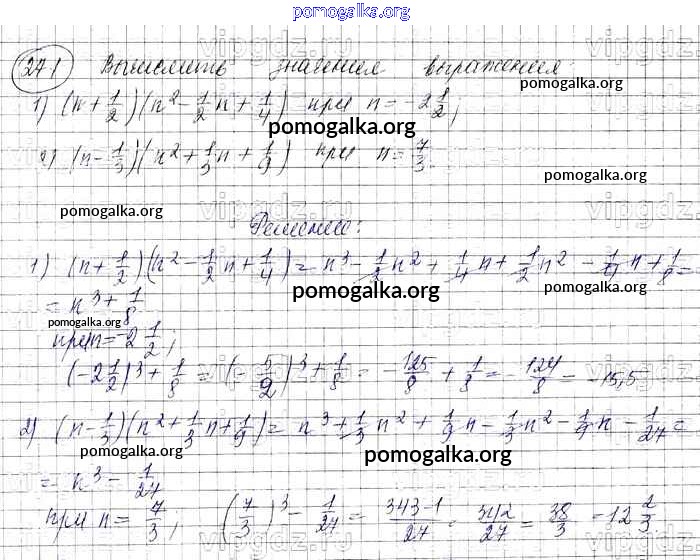 pomogalka.org
271 Вычислить значения выражения
1) (n + 1/2)(n² - 1/2 n + 1/4) при n = -2 1/2;
pomogalka.org
2) (n - 1/3)(n² + 1/3 n + 1/9) при n = 7/3.
pomogalka.org
pomogalka.org
Решение:
1) (n + 1/2)(n² - 1/2 n + 1/4) = n³ - 1/2 n² + 1/4 n + 1/2 n² - 1/4 n + 1/8 =
pomogalka.org
= n³ + 1/8
pomogalka.org
при n = -2 1/2;
(-2 1/2)³ + 1/8 = (-5/2)³ + 1/8 = -125/8 + 1/8 = -124/8 = -15,5
pomogalka.org
2) (n - 1/3)(n² + 1/3 n + 1/9) = n³ + 1/3 n² + 1/9 n - 1/3 n² - 1/9 n - 1/27 =
pomogalka.org
= n³ - 1/27
при n = 7/3; (7/3)³ - 1/27 = 343-1/27 = 342/27 = 38/3 = 12 2/3.